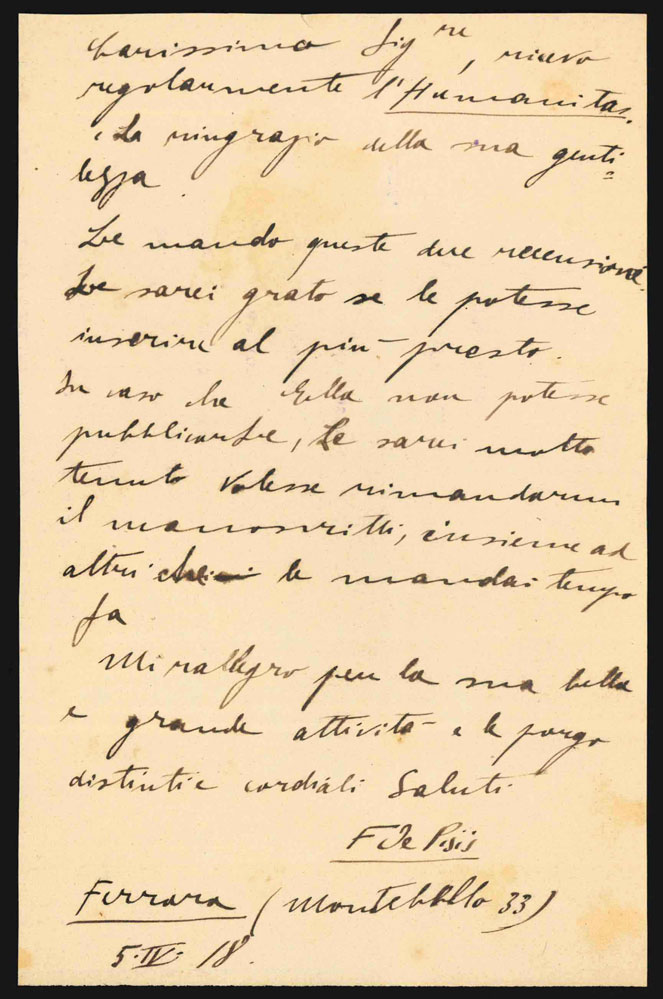 Carissimo Sigre, ricevo
regolarmente l'Humanitas.
e La ringrazio della sua genti=
lezza
Le mando queste due recensioni.
Le sarei grato se le potesse
inserire al più presto.
In caso che Ella non potesse
pubblicarle, Le sarei molto
tenuto volesse rimandarmi
il manoscritti, insieme ad
altri che le mandai tempo
fa
Mi rallegro per la sua bella
e grande attività e le porgo
distinti e cordiali Saluti
F De Pisis
Ferrara (Montebello 33)
5·IV· 18.